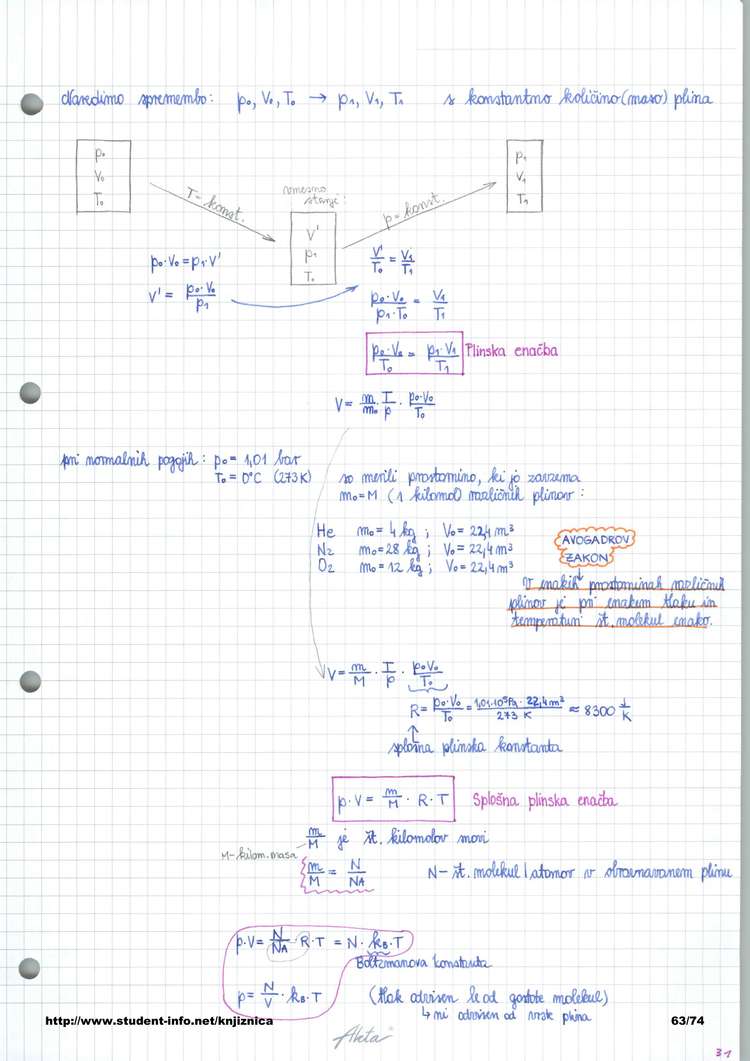 Naredimo spremembo: p₀, V₀, T₀ → p₁, V₁, T₁ s konstantno količino (maso) plina
p₀
V₀
T₀
T = konst.
vmesno
stanje:
V'
p₁
T₀
p = konst.
p₁
V₁
T₁
p₀·V₀ = p₁·V'
V' = p₀·V₀/p₁
V'/T₀ = V₁/T₁
p₀·V₀/p₁·T₀ = V₁/T₁
p₀·V₀/T₀ = p₁·V₁/T₁ Plinska enačba
V = m/m₀ · T/p · p₀·V₀/T₀
pri normalnih pogojih: p₀ = 1,01 bar
T₀ = 0°C (273 K)
so merili prostornino, ki jo zavzema
m₀ = M (1 kilomol) različnih plinov:
He m₀ = 4 kg ; V₀ = 22,4 m³
N₂ m₀ = 28 kg ; V₀ = 22,4 m³
O₂ m₀ = 12 kg ; V₀ = 22,4 m³
AVOGADROV
ZAKON
V enakih prostorninah različnih
plinov je pri enakem tlaku in
temperaturi št. molekul enako.
V = m/M · T/p · p₀V₀/T₀
R = p₀·V₀/T₀ = 1,01·10⁵Pa · 22,4m³/273 K ≈ 8300 J/K
splošna plinska konstanta
p·V = m/M · R·T Splošna plinska enačba
m/M je št. kilomolov snovi
M - kilom. masa
m/M = N/NA N - št. molekul / atomov v obravnavanem plinu
p·V = N/NA · R·T = N · kB·T
Boltzmanova konstanta
p = N/V · kB·T (tlak odvisen le od gostote molekul)
↳ ni odvisen od vrste plina
http://www.student-info.net/knjiznica
63/74
31